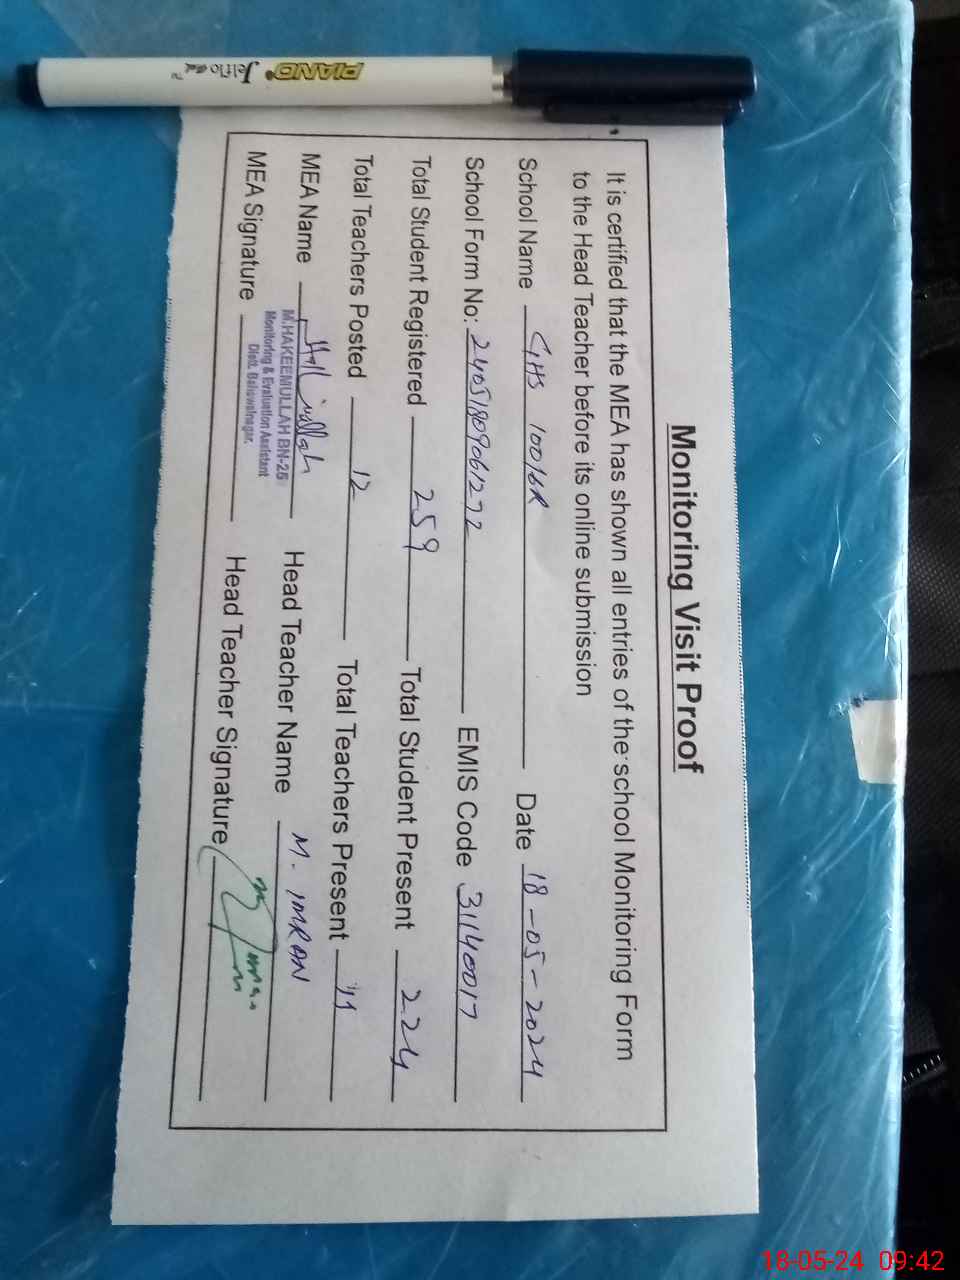 Monitoring Visit Proof
It is certified that the MEA has shown all entries of the school Monitoring Form
to the Head Teacher before its online submission
School Name GHS 100/6R Date 18-05-2024
School Form No: 24051809061272 EMIS Code 31140017
Total Student Registered 259 Total Student Present 224
Total Teachers Posted 12 Total Teachers Present 11
MEA Name Head Teacher Name M. IMRAN
M.HAKEEMULLAH BN-25
Monitoring & Evaluation Assistant
Distt. Bahawalnagar.
MEA Signature Head Teacher Signature
PIANO Jelflo Gel TM
18-05-24 09:42